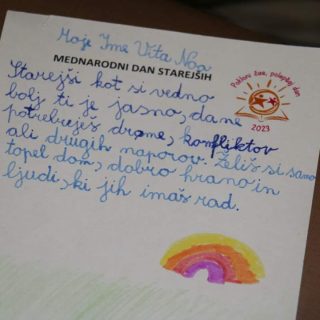 Moje Ime Vita Noa
MEDNARODNI DAN STAREJŠIH
Pokloni čas, polepšaj dan
2023
Starejši kot si vedno
bolj ti je jasno, da ne
potrebuješ drame, konfliktov
ali drugih naporov. Želiš si samo
topel dom, dobro hrano in
ljudi, ki jih imaš rad.